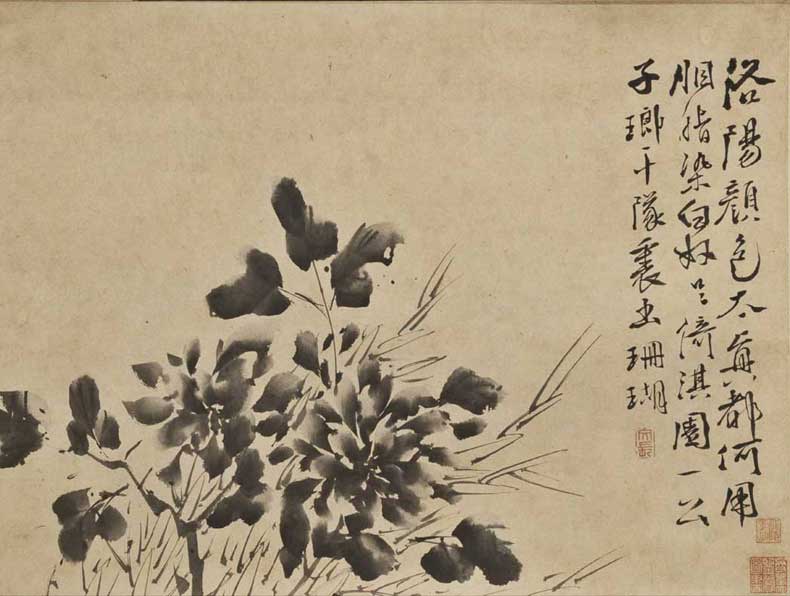 洛陽顏色太真都何用
胭脂染倚淇園一公
子瑯干隊裏出珊瑚